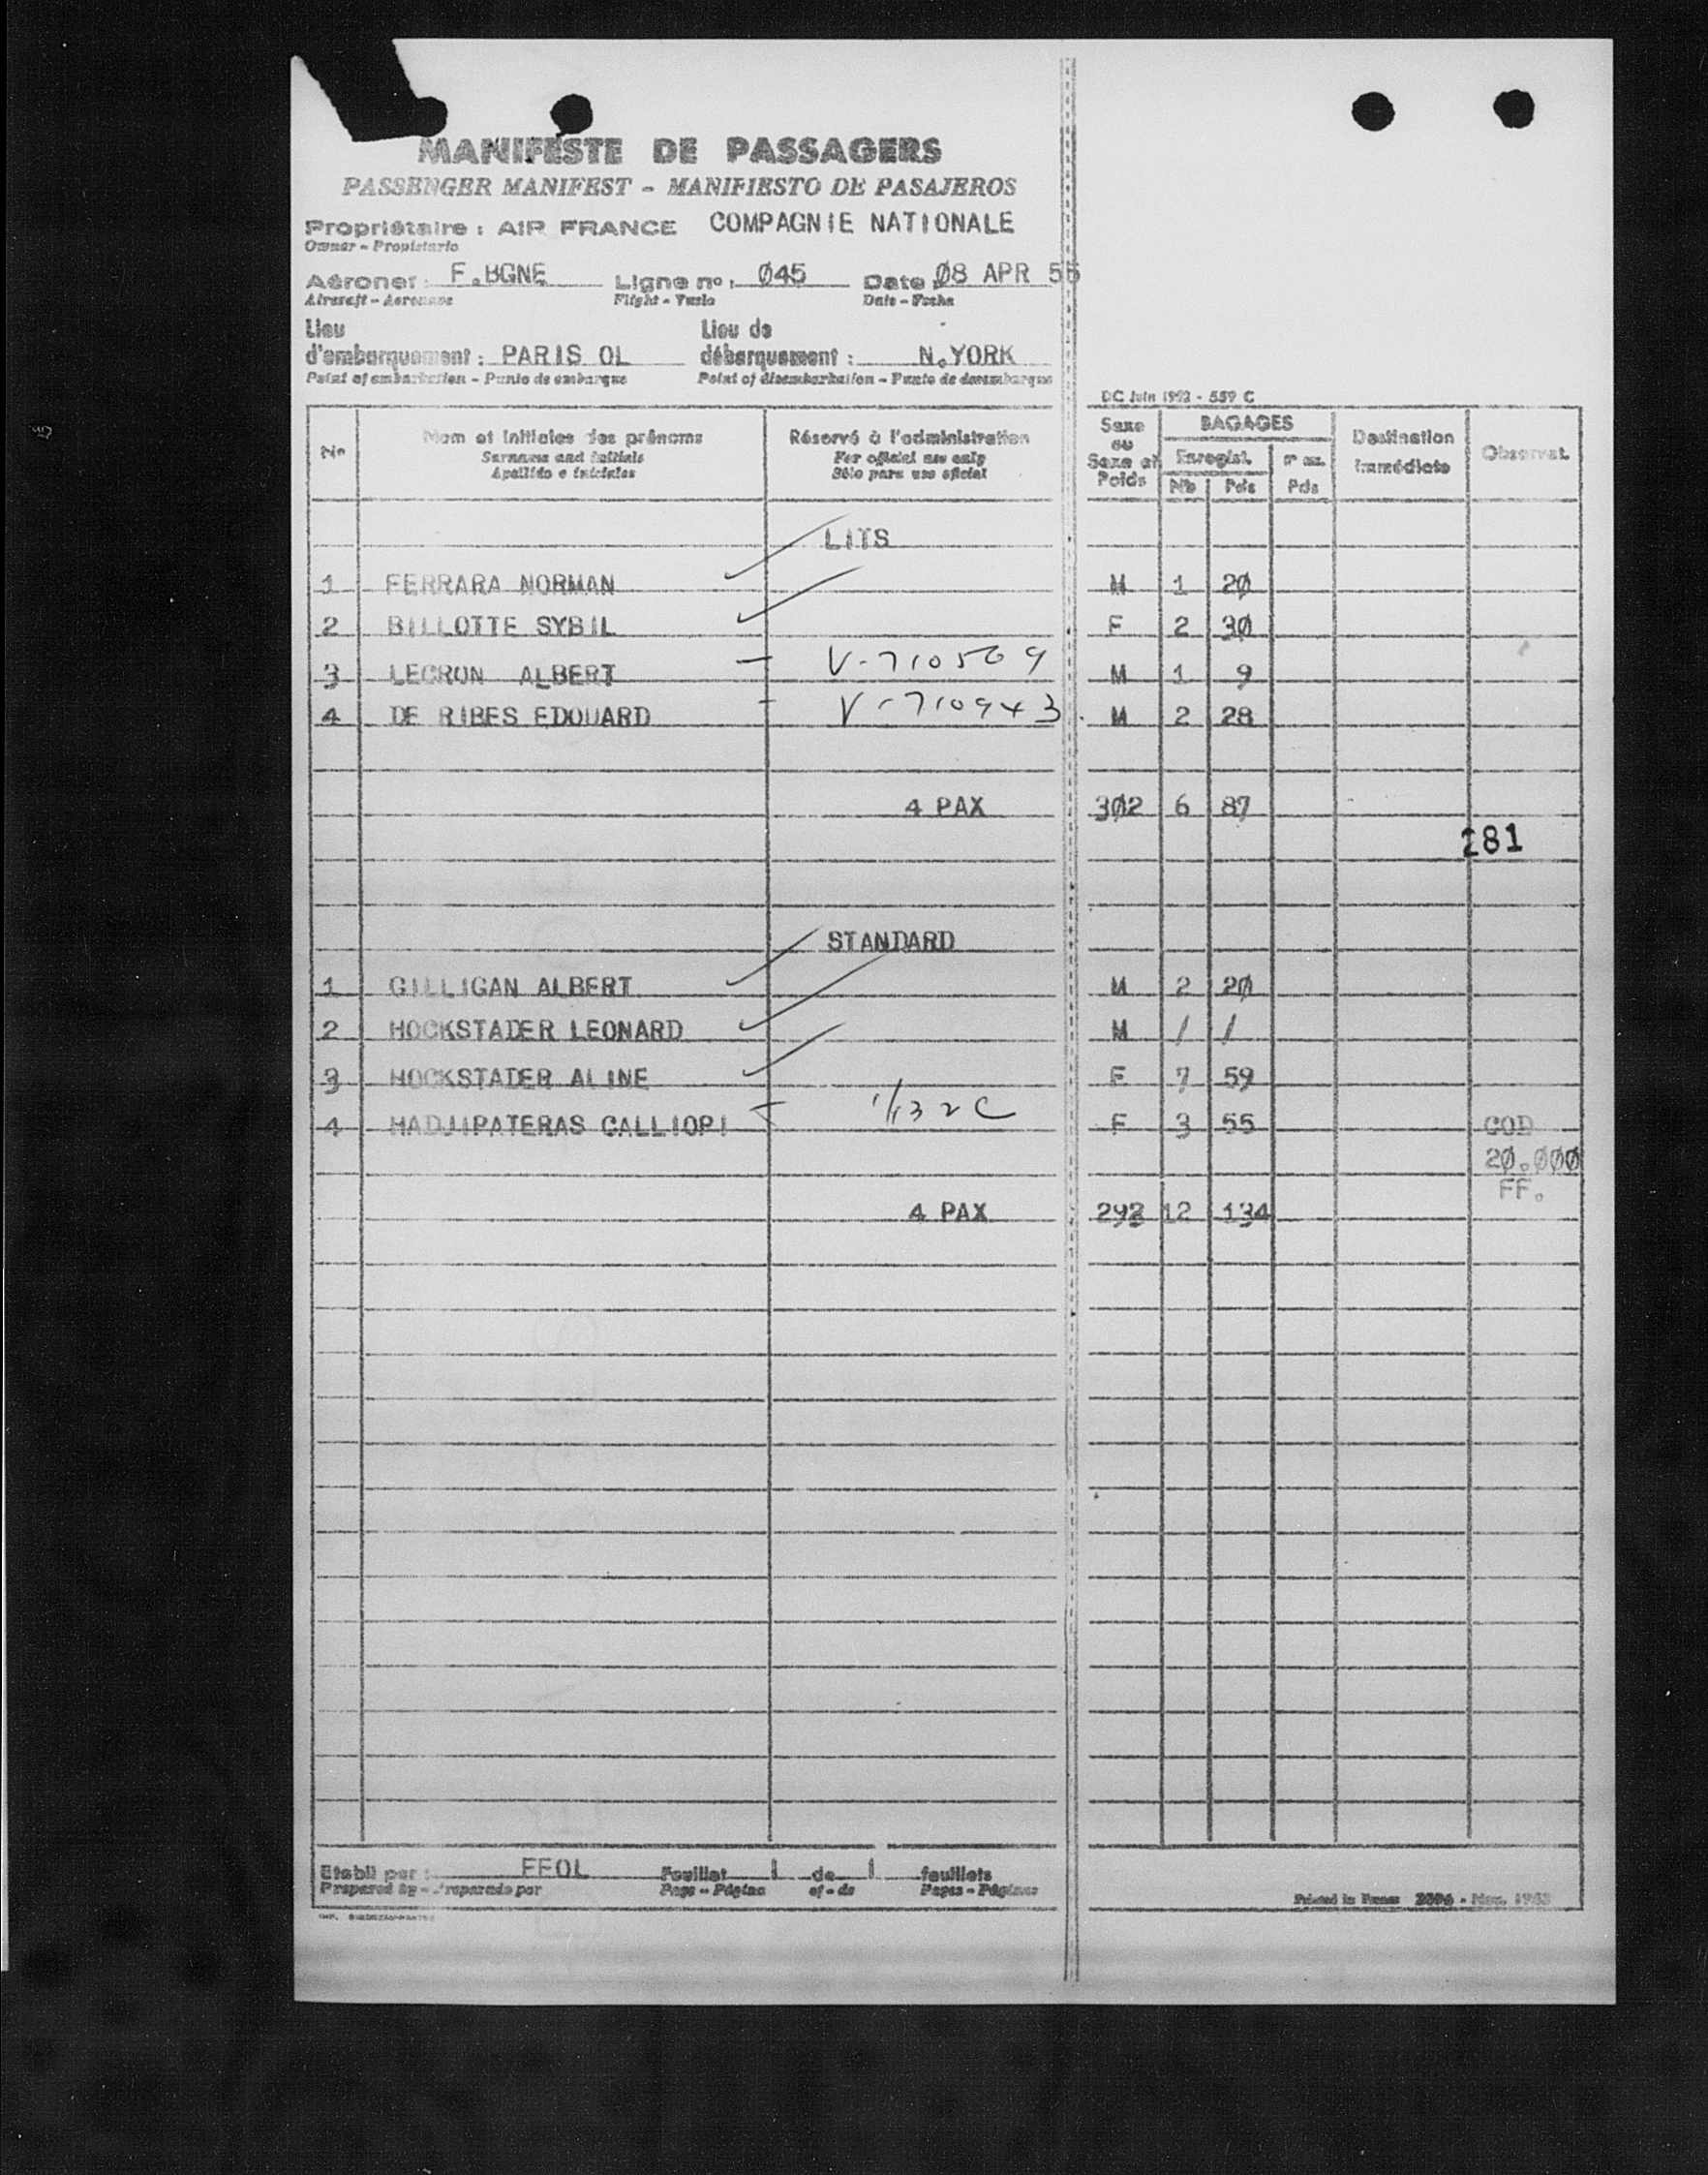 MANIFESTE DE PASSAGERS
PASSENGER MANIFEST - MANIFIESTO DE PASAJEROS
Propriétaire : AIR FRANCE COMPAGNIE NATIONALE
Owner - Propietario
Aéronef : F.BGNE Ligne nº : Ø45 Date : Ø8 APR 55
Aircraft - Aeronave Flight - Vuelo Date - Fecha
Lieu d'embarquement : PARIS OL Lieu de débarquement : N.YORK
Point of embarkation - Punto de embarque Point of disembarkation - Punto de desembarque
DC Juin 1952 - 559 C
Nº Nom et Initiales des prénoms Réservé à l'administration Sexe ou Sexe et Poids BAGAGES Destination Immédiate Observat.
Surname and initials For official use only Enregist.
Apellido e iniciales Sólo para uso oficial Nb Pds Pds
LITS
1 FERRARA NORMAN M 1 2Ø
2 BILLOTTE SYBIL F 2 3Ø
3 LECRON ALBERT - V-710569 M 1 9
4 DE RIBES EDOUARD - V-710943 M 2 28
4 PAX 3Ø2 6 87
281
STANDARD
1 GILLIGAN ALBERT M 2 2Ø
2 HOCKSTADER LEONARD M / /
3 HOCKSTADER ALINE F 7 59
4 HADJIPATERAS CALLIOPI - F 3 55 COD
2Ø.ØØØ
FF.
4 PAX 292 12 134
Etabli par : FFOL Feuillet 1 de 1 feuillets
Prepared by - Preparado por Page - Página of - de Pages - Páginas
Printed in France